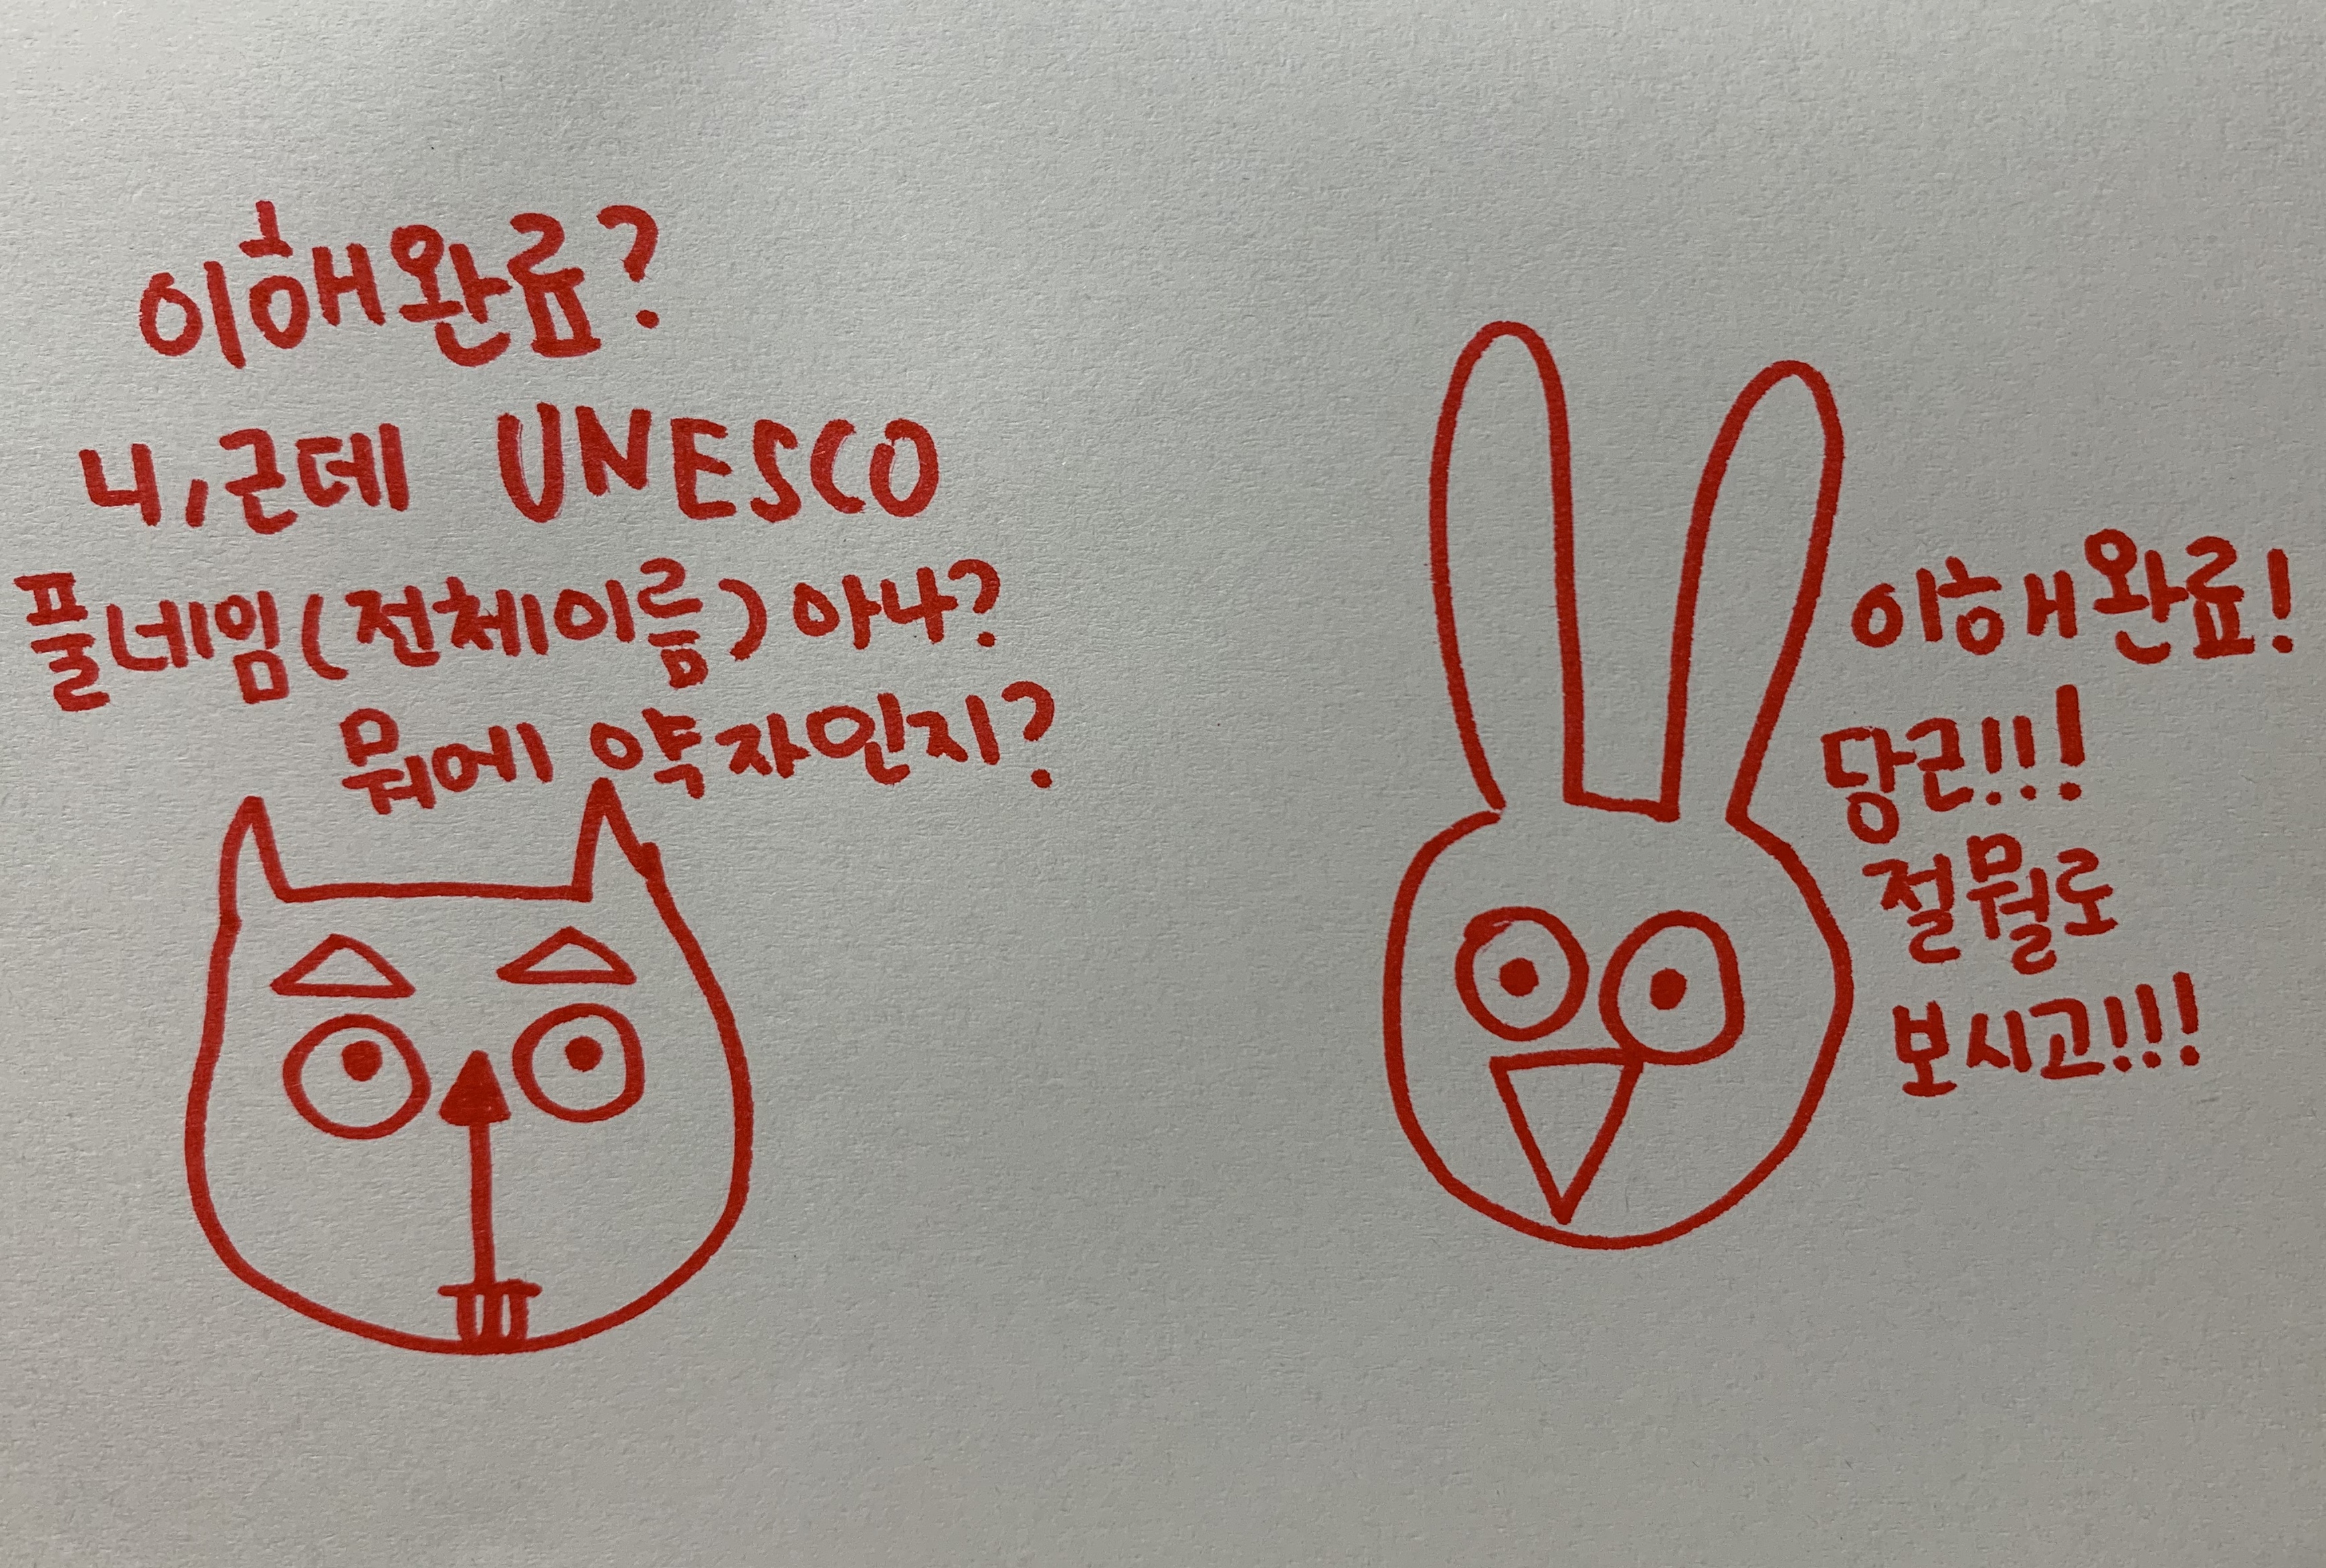 이해완료?
니,근데 UNESCO
풀네임(전체이름)아나?
뭐에 약자인지?
이해완료!
당근!!!
절뭘로
보시고!!!